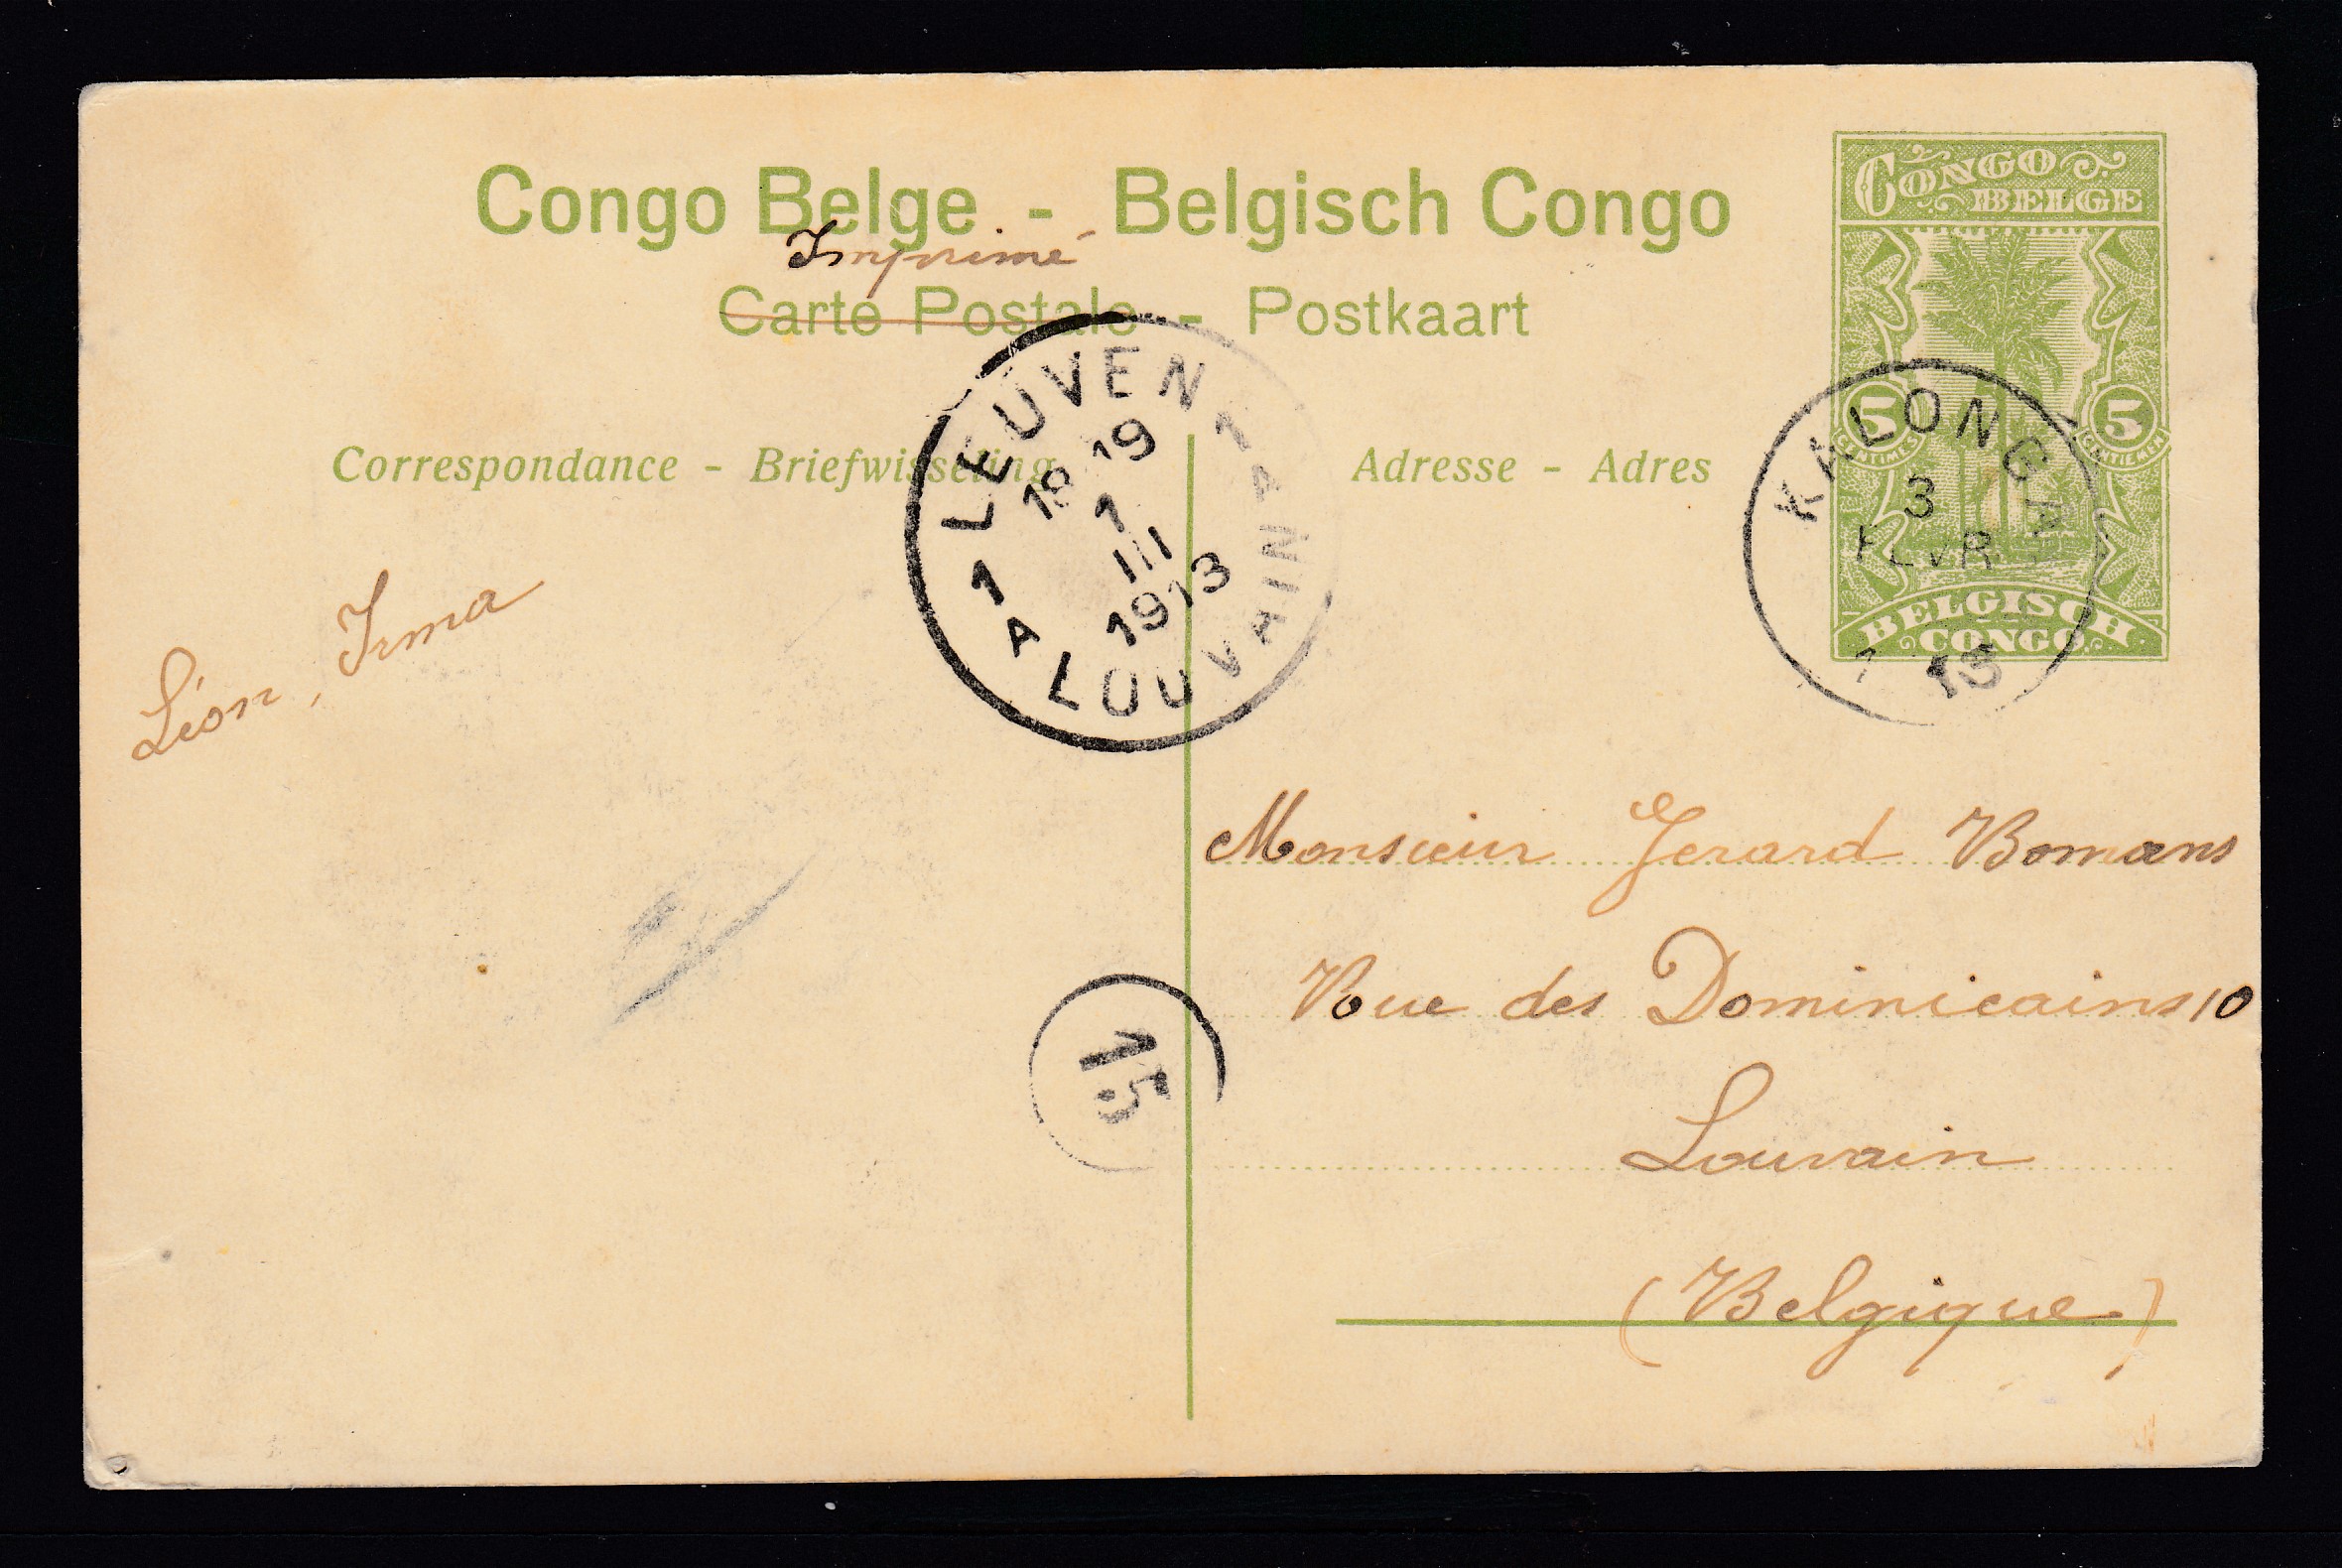 Congo Belge - Belgisch Congo
Imprimé
Carte Postale - Postkaart
CONGO BELGE
5 CENTIMES
5 CENTIEMEN
BELGISCH CONGO
KALONGA
3
FEVR
13
LEUVEN 1
18 19
1
III
1913
1A LOUVAIN 1A
Correspondance - Briefwisseling
Adresse - Adres
Léon, Irma
Monsieur Gerard Bomans
Rue des Dominicains 10
Louvain
(Belgique)
15